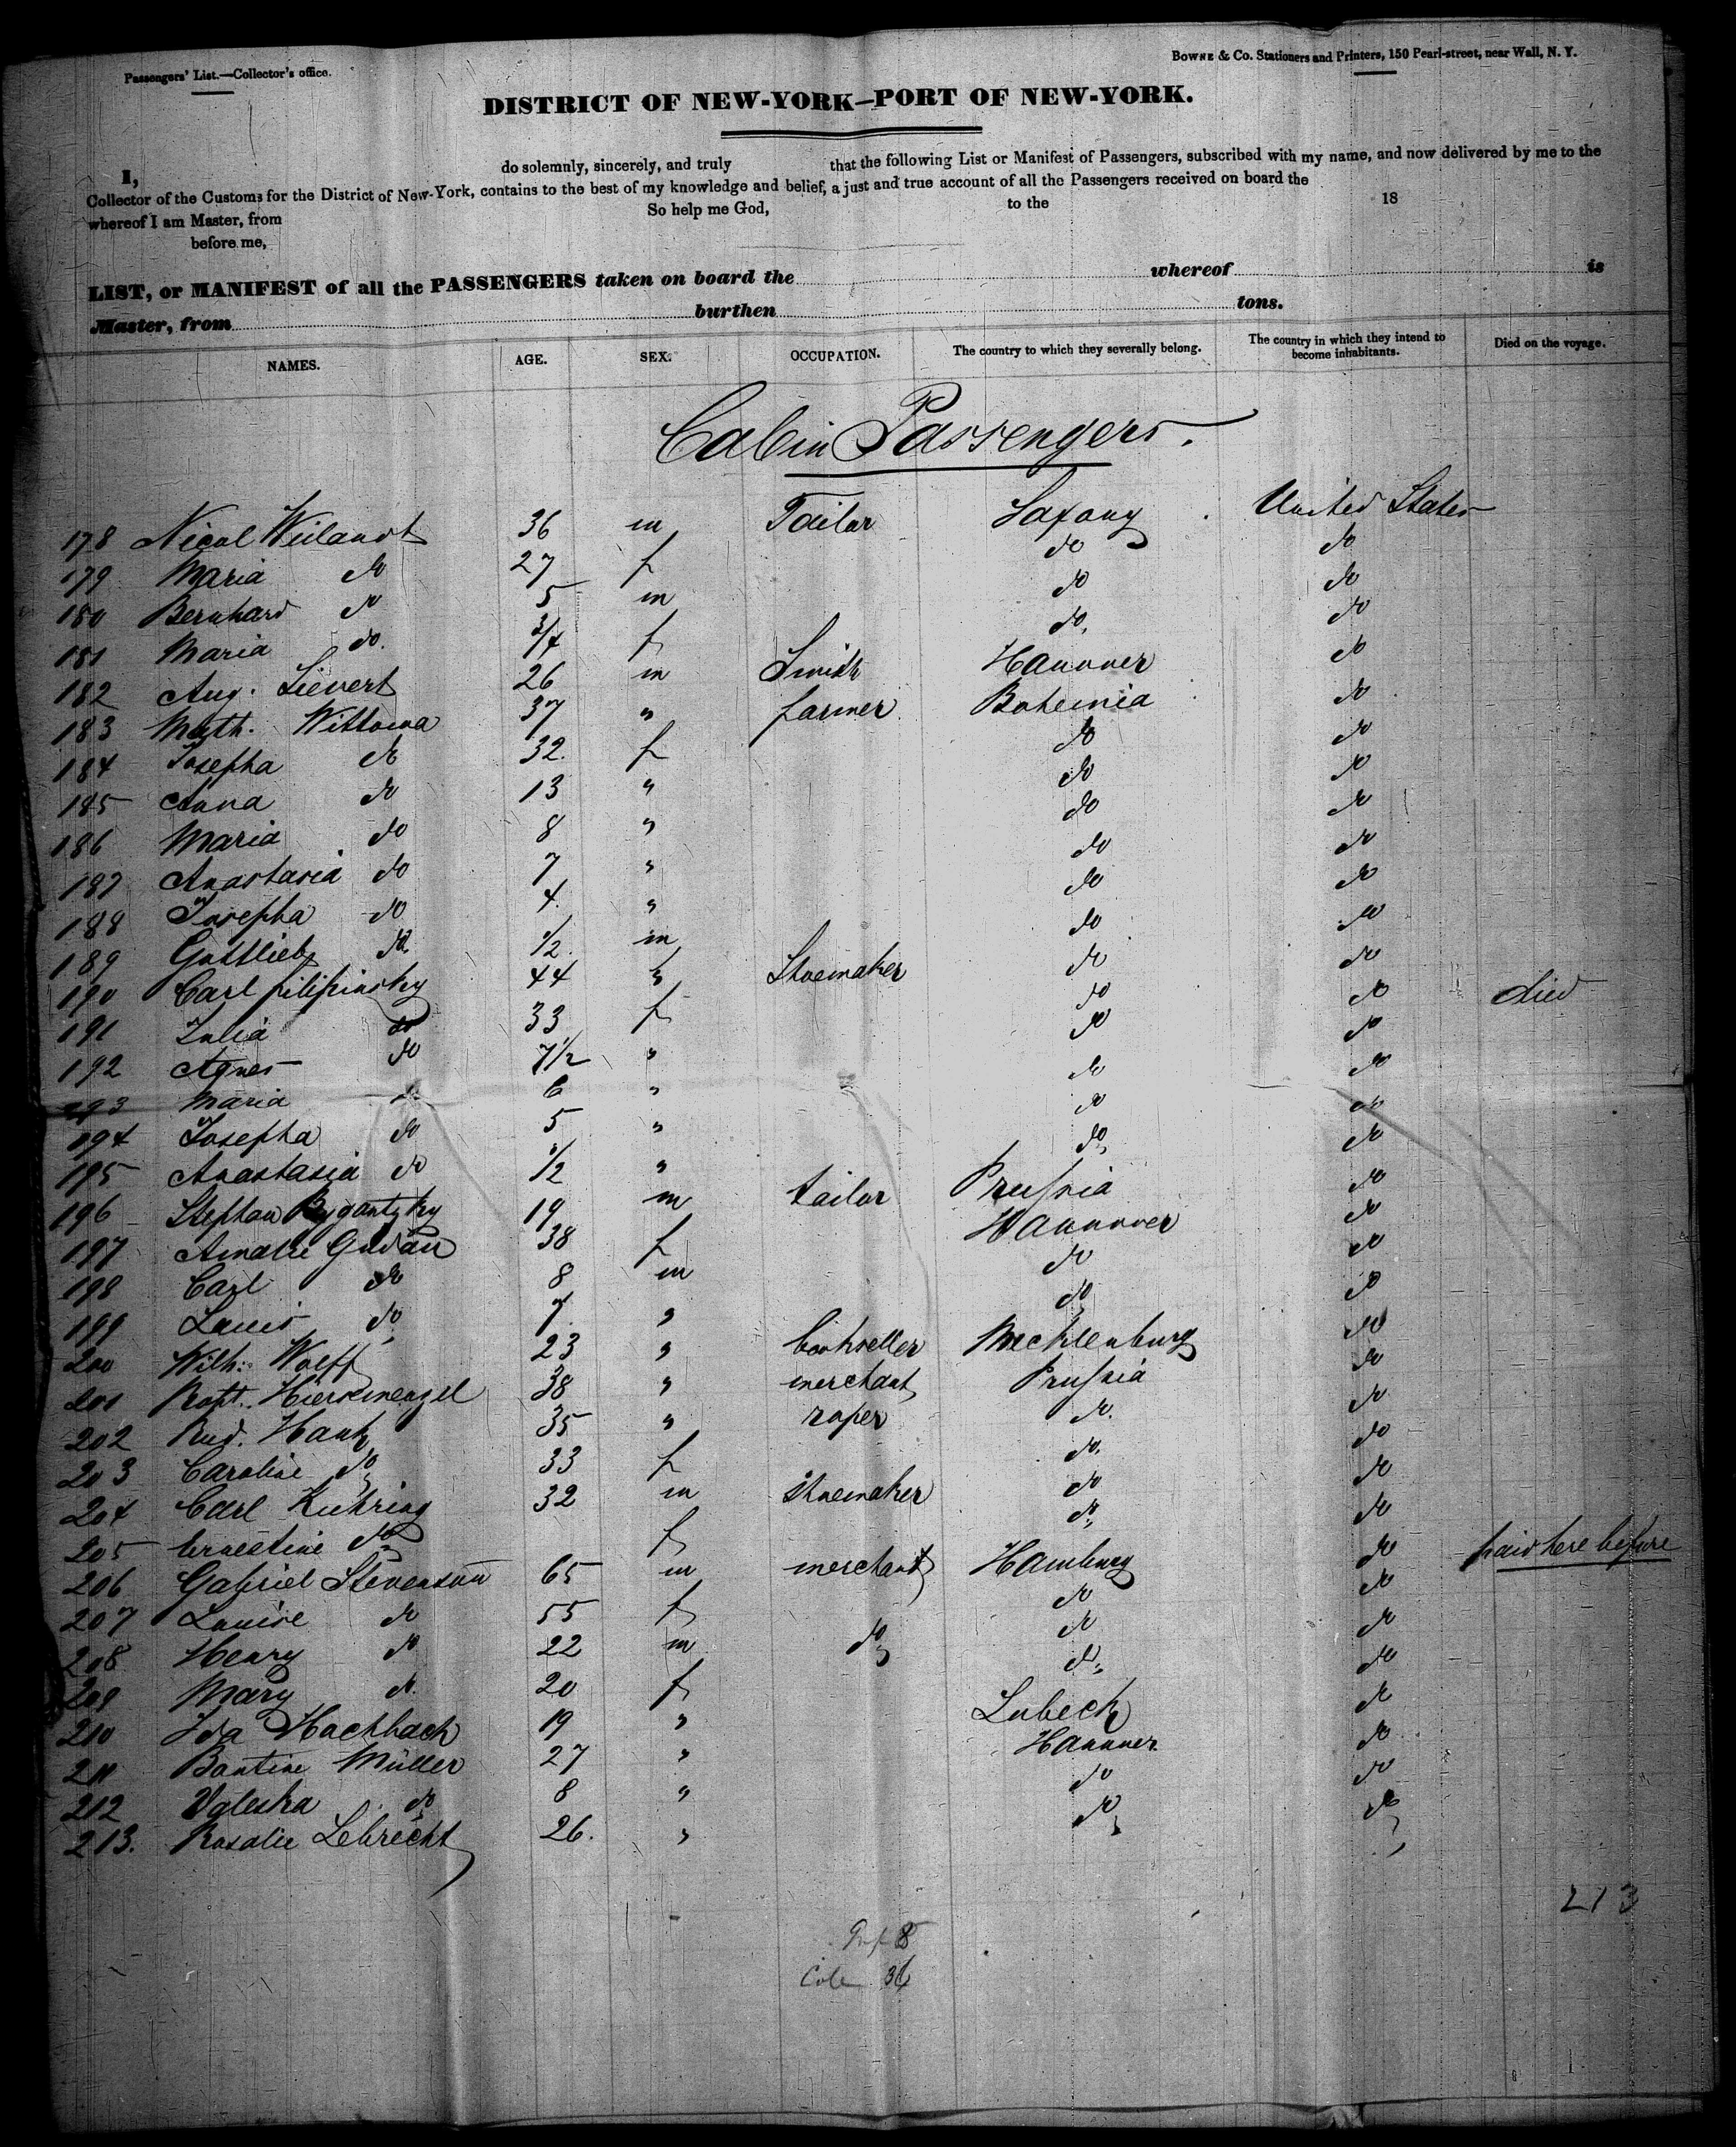 Passengers' List.—Collector's office.
Bowne & Co. Stationers and Printers, 150 Pearl-street, near Wall, N. Y.
DISTRICT OF NEW-YORK—PORT OF NEW-YORK.
I, do solemnly, sincerely, and truly that the following List or Manifest of Passengers, subscribed with my name, and now delivered by me to the
Collector of the Customs for the District of New-York, contains to the best of my knowledge and belief, a just and true account of all the Passengers received on board the
whereof I am Master, from So help me God, to the 18
before me,
LIST, or MANIFEST of all the PASSENGERS taken on board the whereof is
Master, from burthen tons.
NAMES. AGE. SEX. OCCUPATION. The country to which they severally belong. The country in which they intend to become inhabitants. Died on the voyage.
Cabin Passengers.
178 Nicol Wielandt 36 m Tailor Saxony United States
179 Maria do 27 f do do
180 Bernhard do 5 m do do
181 Maria do. 3/4 f do. do
182 Aug. Sievert 26 m Smith Hannover do
183 Math. Wittowa 37 " farmer Bohemia do
184 Josepha do 32. f do do
185 Anna do 13 " do do
186 Maria do 8 " do do
187 Anastasia do 7 " do do
188 Josepha do 4 " do do
189 Gottlieb do 1/2 m do do
190 Carl filipinsky 44 " Shoemaker do do died
191 Julia do 33 f do do
192 Agnes do 7 1/2 " do do
193 Maria do 6 " do do
194 Josepha do 5 " do do
195 Anastasia do 1/2 " do do
196 Stephan 19 m tailor Prussia do
197 Amalie Gudau 38 f Hannover do
198 Carl do 8 m do do
199 Louis do 7 " do do
200 Wilh. Wolff 23 " bookseller Mecklenburg do
201 Robt. Hierkmenzel 38 " merchant Prussia do
202 Rud. Hank 35 " roper do. do
203 Caroline do 33 f do. do
204 Carl Kuhring 32 m Shoemaker do do
205 Ernestine do f do do
206 Gabriel Stevenson 65 m merchant Hamburg do paid here before
207 Louise do 55 f do do
208 Henry do 22 m do do do
209 Mary do. 20 f do do
210 Ida Hachbach 19 " Lubeck do
211 Bantine Müller 27 " Hannover do
212 Valeska do 8 " do do
213. Rosalie Lebrecht 26. " do do
213